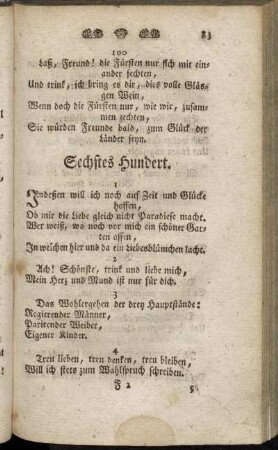 83
100
Laß, Freund! die Fürsten nur sich mit ein-
ander fechten,
Und trink, ich bring es dir, dies volle Gläs-
gen Wein,
Wenn doch die Fürsten nur, wie wir, zusam-
men zechten,
Sie würden Freunde bald, zum Glück der
Länder seyn.
Sechstes Hundert.
1
Indeßen will ich noch auf Zeit und Glücke
hoffen,
Ob mir die Liebe gleich nicht Paradiese macht.
Wer weiß, wo noch vor mich ein schöner Gar-
ten offen,
In welchen hier und da ein Liebesblümchen lacht.
2
Ach! Schönste, trink und liebe mich,
Mein Herz und Mund ist nur für dich.
3
Das Wohlergehen der drey Hauptstände:
Regierender Männer,
Parirender Weiber,
Eigener Kinder.
4
Treu lieben, treu denken, treu bleiben,
Will ich stets zum Wahlspruch schreiben.
F 2
5